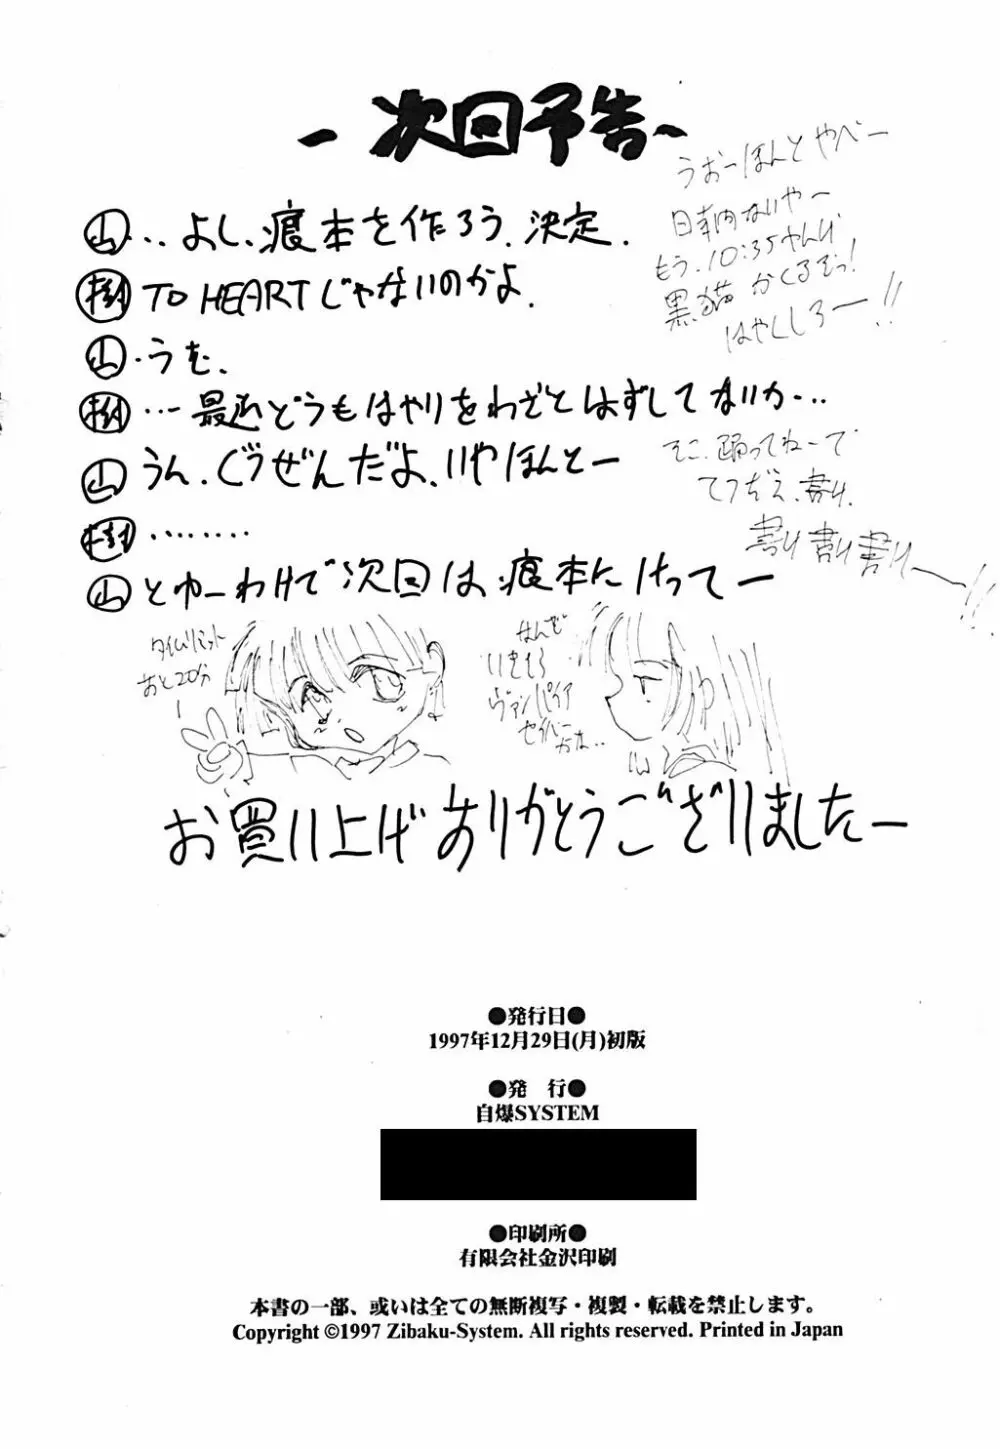 －次回予告～
山‥よし、痕本を作ろう。決定。
樹 TO HEARTじゃないのかよ。
山・うむ。
樹…最近どうもはやりをわざとはずしてないか…
山 うん。ぐうぜんだよ、いやほんとー
樹………
山 とゆーわけで次回は、痕本にけってー
うおーほんとやべー
日本内ないやー
もう、10:35やんけ
黒猫がくるぞっ!
はやくしろー!!
そこ、踊ってねーで
てつだえ、書け、
書け書け書けー!!
タイムリミット
あと20分
なんで
いきなり
ヴァンパイア
セイバー
かね‥
お買い上げありがとうございましたー
●発行日●
1997年12月29日(月)初版
●発 行●
自爆SYSTEM
●印刷所●
有限会社金沢印刷
本書の一部、或いは全ての無断複写・複製・転載を禁止します。
Copyright ©1997 Zibaku-System. All rights reserved. Printed in Japan